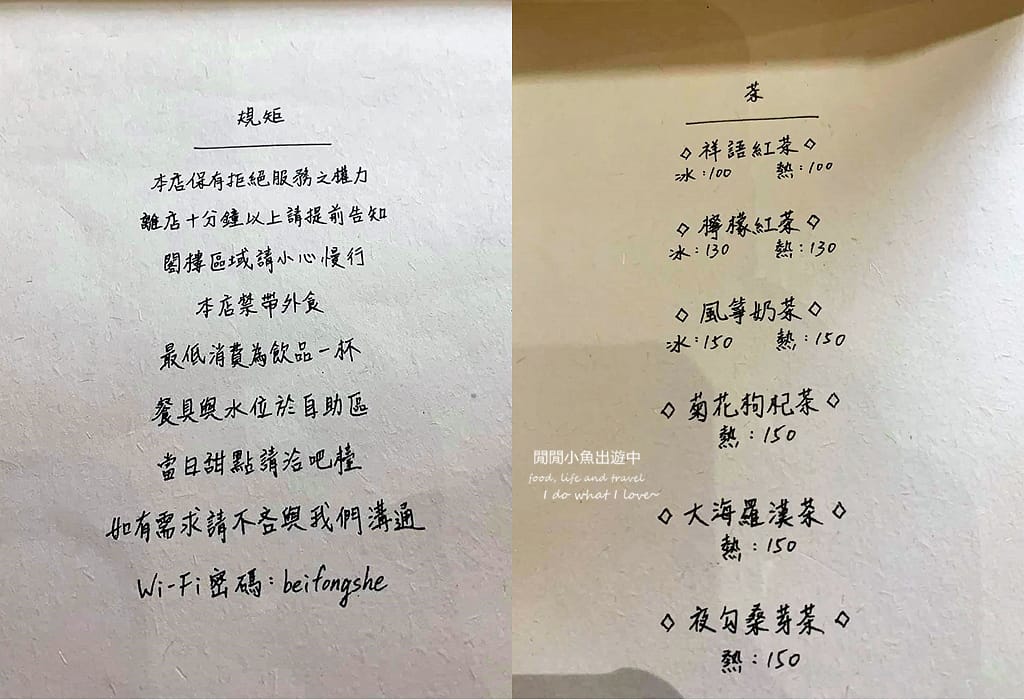 規矩
本店保有拒絕服務之權力
離店十分鐘以上請提前告知
閣樓區域請小心慢行
本店禁帶外食
最低消費為飲品一杯
餐具與水位於自助區
當日甜點請洽吧檯
如有需求請不吝與我們溝通
Wi-Fi密碼:beifongshe
茶
◇祥語紅茶◇
冰:100 熱:100
◇檸檬紅茶◇
冰:130 熱:130
◇風箏奶茶◇
冰:150 熱:150
◇菊花枸杞茶◇
熱:150
閒閒小魚出遊中
food, life and travel
I do what I love~
◇大海羅漢茶◇
熱:150
◇夜勾桑芽茶◇
熱:150